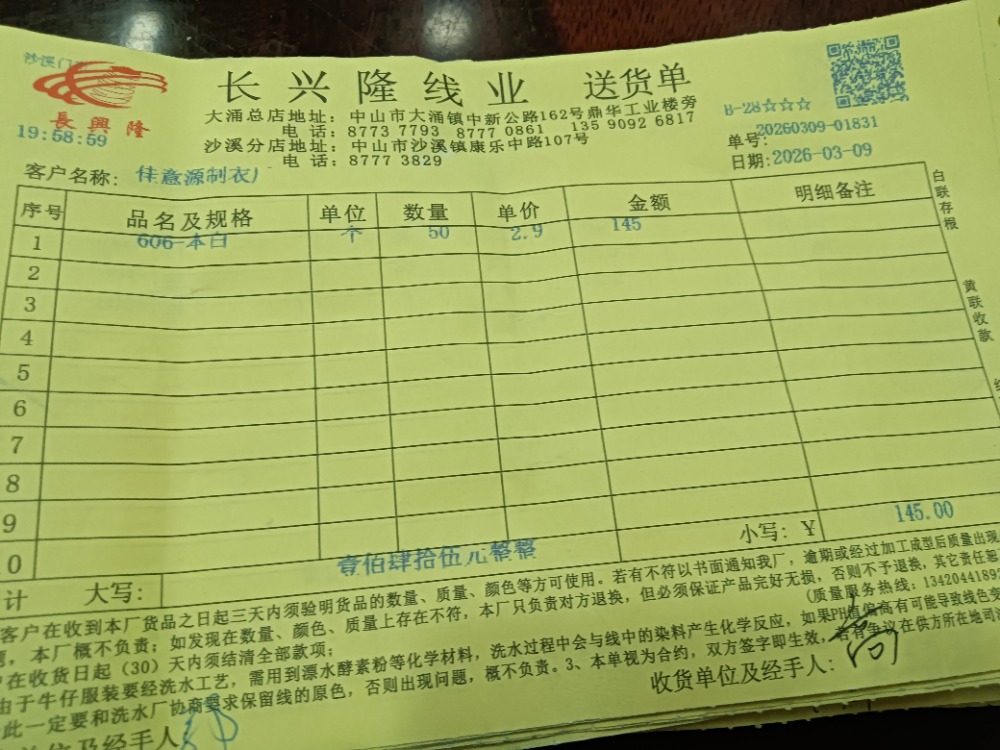 沙溪门
長興隆
19:58:59
长兴隆线业 送货单
大涌总店地址: 中山市大涌镇中新公路162号鼎华工业楼旁
电话: 8773 7793 8777 0861 135 9092 6817
沙溪分店地址: 中山市沙溪镇康乐中路107号
电话: 8777 3829
B-28☆☆☆
单号: 20260309-01831
日期: 2026-03-09
客户名称: 佳意源制衣厂
序号 品名及规格 单位 数量 单价 金额 明细备注
1 606-本白 个 50 2.9 145
2
3
4
5
6
7
8
9
0
计 大写: 壹佰肆拾伍元整整 小写: ¥ 145.00
白联存根
黄联收款
客户在收到本厂货品之日起三天内须验明货品的数量、质量、颜色等方可使用。若有不符以书面通知我厂, 逾期或经过加工成型后质量出现
, 本厂概不负责; 如发现在数量、颜色、质量上存在不符, 本厂只负责对方退换, 但必须保证产品完好无损, 否则不予退换, 其它责任
在收货日起(30)天内须结清全部款项; (质量服务热线: 1342044189
由于牛仔服装要经洗水工艺, 需用到漂水酵素粉等化学材料, 洗水过程中会与线中的染料产生化学反应, 如果PH值偏高有可能导致线色变
此一定要和洗水厂协商要求保留线的原色, 否则出现问题, 概不负责。3、本单视为合约, 双方签字即生效, 若有争议在供方所在地司
单位及经手人
收货单位及经手人: